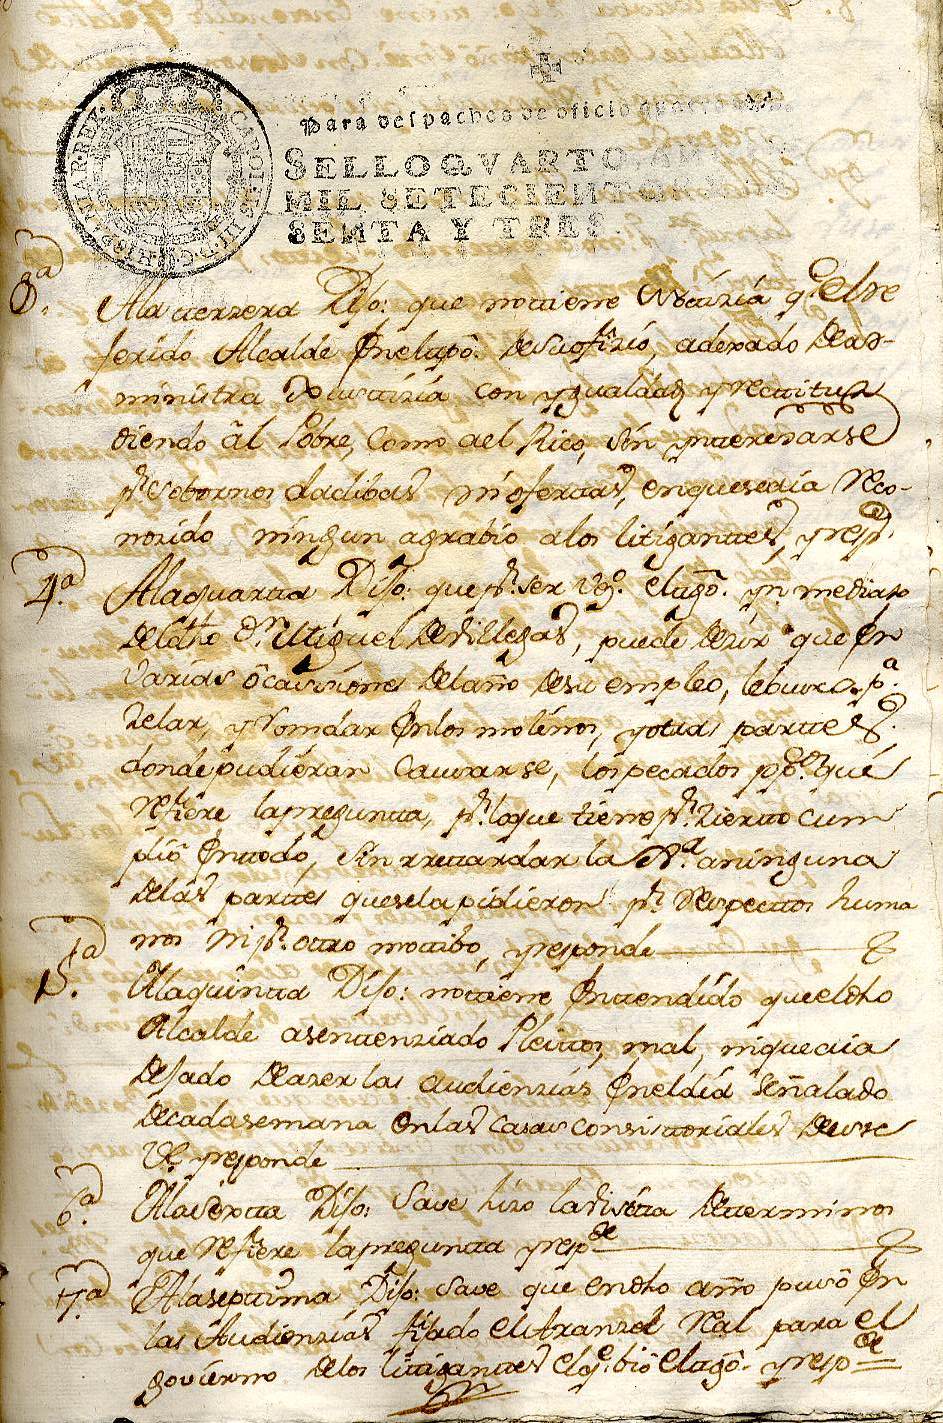 CAROLUS III D.G. HISPANIAR. REX.
Para despachos de oficio quatro mrs.
SELLO QVARTO, AÑO
MIL SETECIENTOS
SENTA Y TRES.
3ª.
A la terzera Dijo: que no tiene notizia q.e el re
ferido Alcalde en el tpô. de su ofizio, a dexado de ad-
ministra Justizia con ygualdad y rectitud
diendo âl Pobre, como al Rico, sin ynteresarse
p.r sobornos dadibas ni ofertas, en que se aia reco-
nozido ningun agrabio a los litigantes, y resp.de
4ª.
A la quarta Dijo: que p.r ser vº. el tgô. ynmediato
del dho Dn Miguel de Villegas, puede dezir que en
varias ôcassiones del año de su empleo, le busco pª.
zelar, y rondar en los molinos, y otras partes.
donde pudieran causarse, los pecados ppcos. que
refiere la pregunta, p.r lo que tiene p.r zierto cum
pliô en todo, sin rretardar la Jª. a ninguna
de las partes que se la pidieron p.r respectos huma
nos ni p.r otro motibo, y responde
5ª.
A la quinta Dijo: no tiene entendido que el dho
Alcalde a sentenziado Pleitos, mal, ni que aia
dejado de azer las audienzias en el dia señalado
de cada semana en las casas consistoriales de este
y responde
6ª.
A la sexta Dijo: save hizo la visitta de terminos
que refiere la pregunta y resp.de
7ª.
A la septtima Dijo: save que en dho año pusô en
las Audienzias fijado el Aranzel Real para el
govierno de los litigantes el q.e biô el tgô. y resp.de